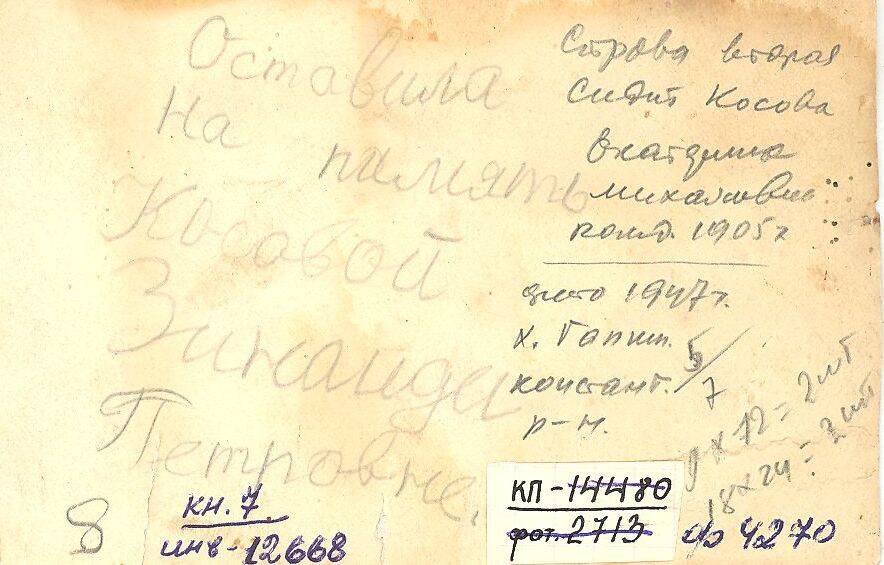 Оставила
на память
Косовой
Зинаиды
Петровне.
Справа вторая
сидит Косова
Екатерина
Михайловна
рожд. 1905г
фото 1947г.
х. Гапкин.
констант. 5/7
р-н.
9х12=2шт
18х24=2шт
8
кн. 7
инв-12668
КП-14480
фот. 2713
ф 4270